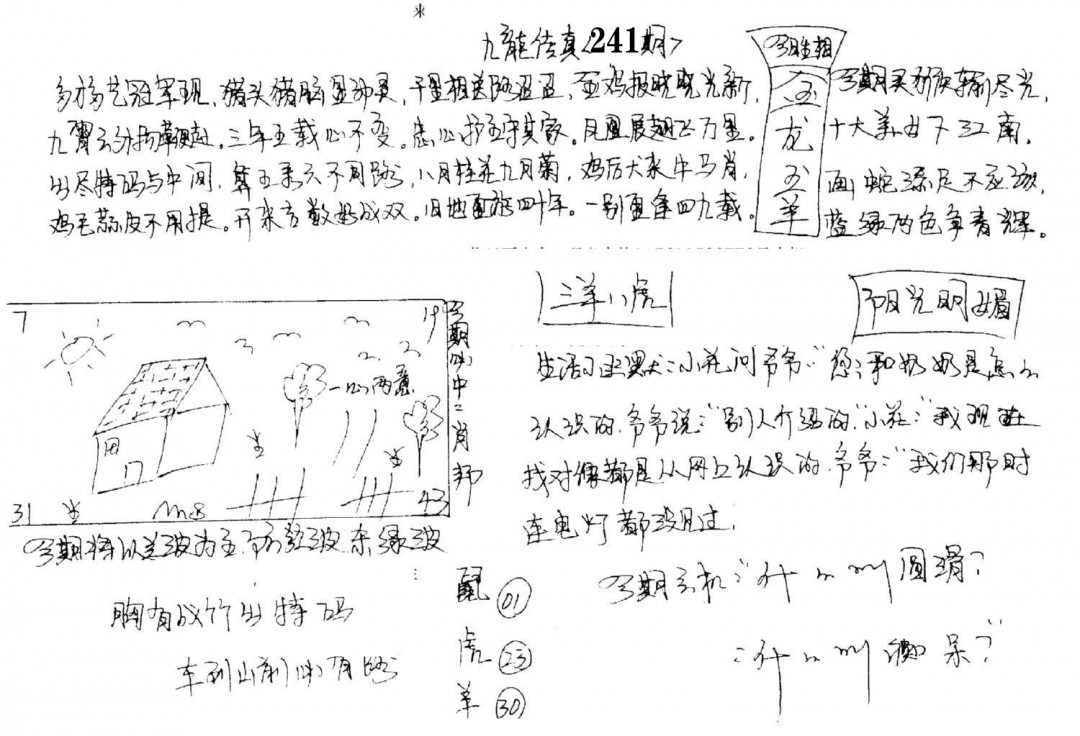 九龍传真<241期>
多才多艺冠军现，猪头猪脑显神灵，千里相送路迢迢，金鸡报晓晓光新，
九霄云外扬鞭赴，三年五载心不变。忠心护主守其家。凤凰展翅飞万里。
出尽特码与中间，算五来六不同路，八月桂花九月菊，鸡后犬来牛马肖，
鸡毛蒜皮不用提。开来吉数好成双。旧地重游四十年。一别重逢四九载。
今期生相
龙
羊
今期买
尽光，
十大美女下江南，
画蛇添足不应该，
蓝绿两色争青辉。
三羊八虎
阳光明媚
7
19
31
43
一心两意
m8
今期必中二肖
生活幽默：小花问爷爷："您和奶奶是怎么
认识的，爷爷说："别人介绍的"小花："我现在
找对像都是从网上认识的，爷爷："我们那时
连电灯都没见过，
今期将以蓝波为主，防红波杀绿波
胸有成竹出特码
车到山前必有路
鼠 01
虎 23
羊 30
今期玄机："什么
圆滑？
：什么
呆？"